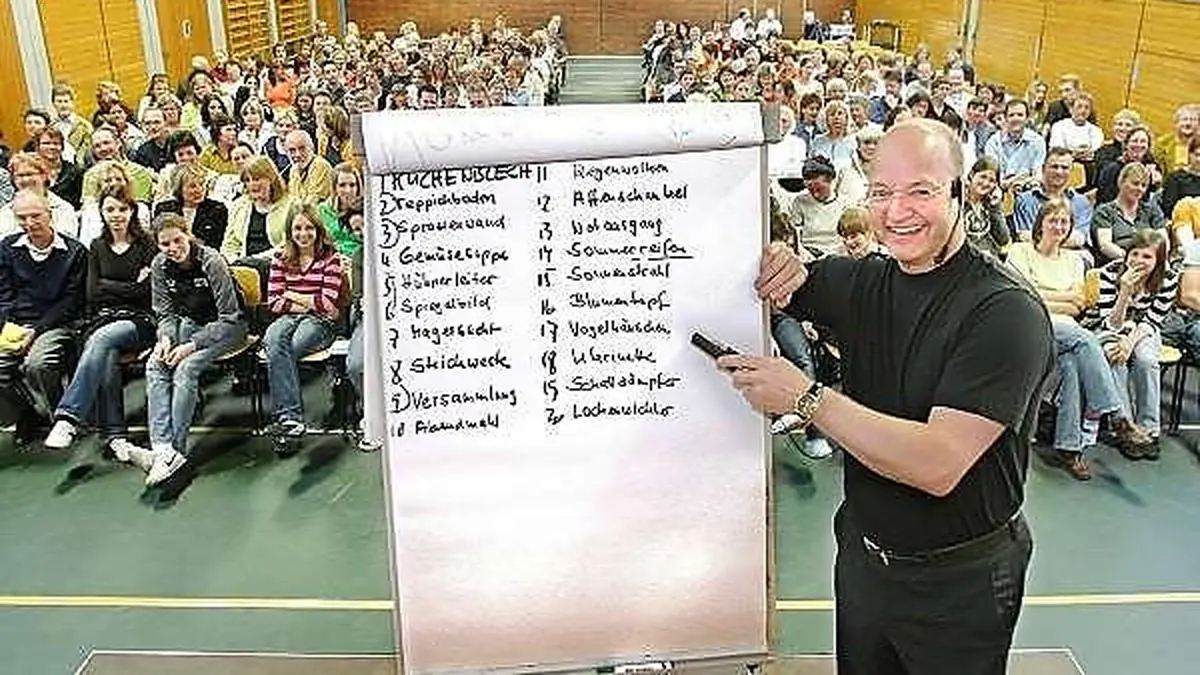 1 KUCHENBLECH
2) Teppichboden
3) Sprossenwand
4 Gemüsesuppe
5 Hühnerleiter
6 Spiegelbild
7 Magersucht
8 Strickweste
9) Versammlung
10 Abendmahl
11 Regenwolken
12 Affenschaukel
13 Notausgang
14 Sommerreifen
15 Sonnenstrahl
16 Blumentopf
17 Vogelhäuschen
18 Klarinette
19 Schalldämpfer
20